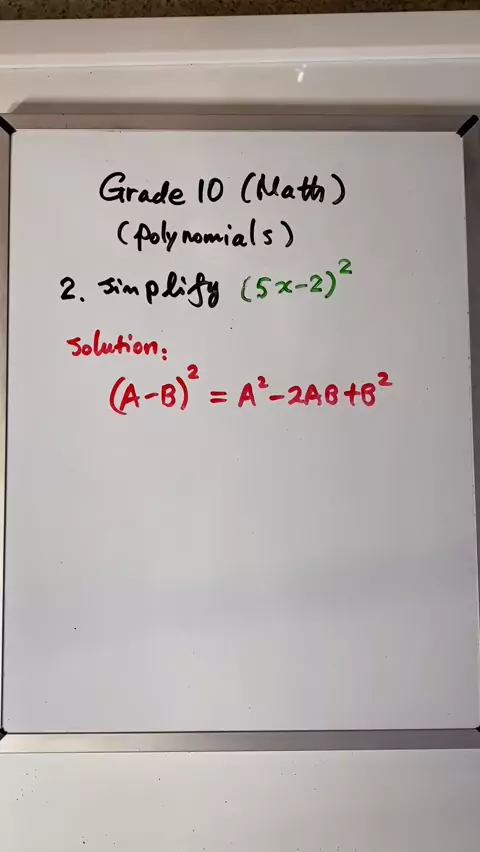 Grade 10 (Math)
(polynomials)
2. simplify (5x-2)²
Solution:
(A-B)² = A²-2AB+B²